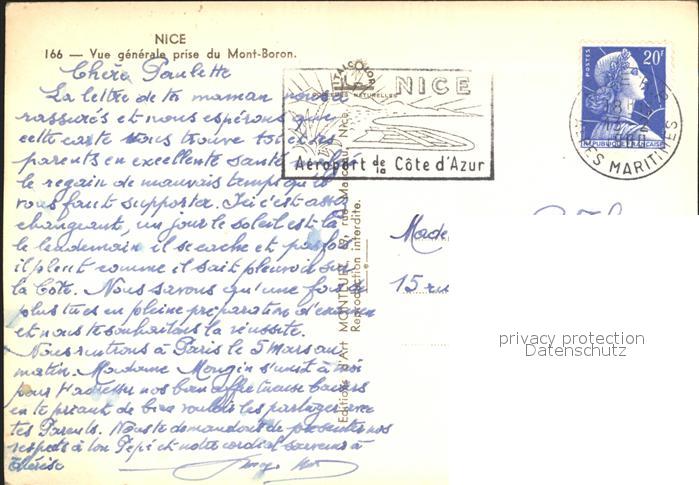 NICE
166 — Vue générale prise du Mont-Boron.
Chère Paulette
La lettre de ta maman nous a
rassurés et nous espérons que
cette carte vous trouve toi et tes
parents en excellente santé
le regain de mauvais temps qu'il
vous faut supporter. Ici c'est assez
changeant, un jour le soleil est là
le lendemain il se cache et parfois
il pleut comme il sait pleuvoir sur
la Côte. Nous savons qu'une fois de
plus tu es en pleine préparation d'examen
et nous te souhaitons la réussite.
Nous rentrons à Paris le 5 Mars au
matin. Madame Mougin s'unit à moi
pour t'adresser nos bien affectueux baisers
en te priant de bien vouloir les partager avec
tes Parents. Nous te demandons de présenter nos
respects à ton Pépé et notre cordial souvenir à
Thérèse
ITALCOLOR
COULEURS NATURELLES
NICE
Aéroport de la Côte d'Azur
POSTES
20F
REPUBLIQUE FRANÇAISE
ALPES MARITIMES
Editions d'Art MONTLUET, rue
Reproduction interdite.
Made
15 ru
privacy protection
Datenschutz